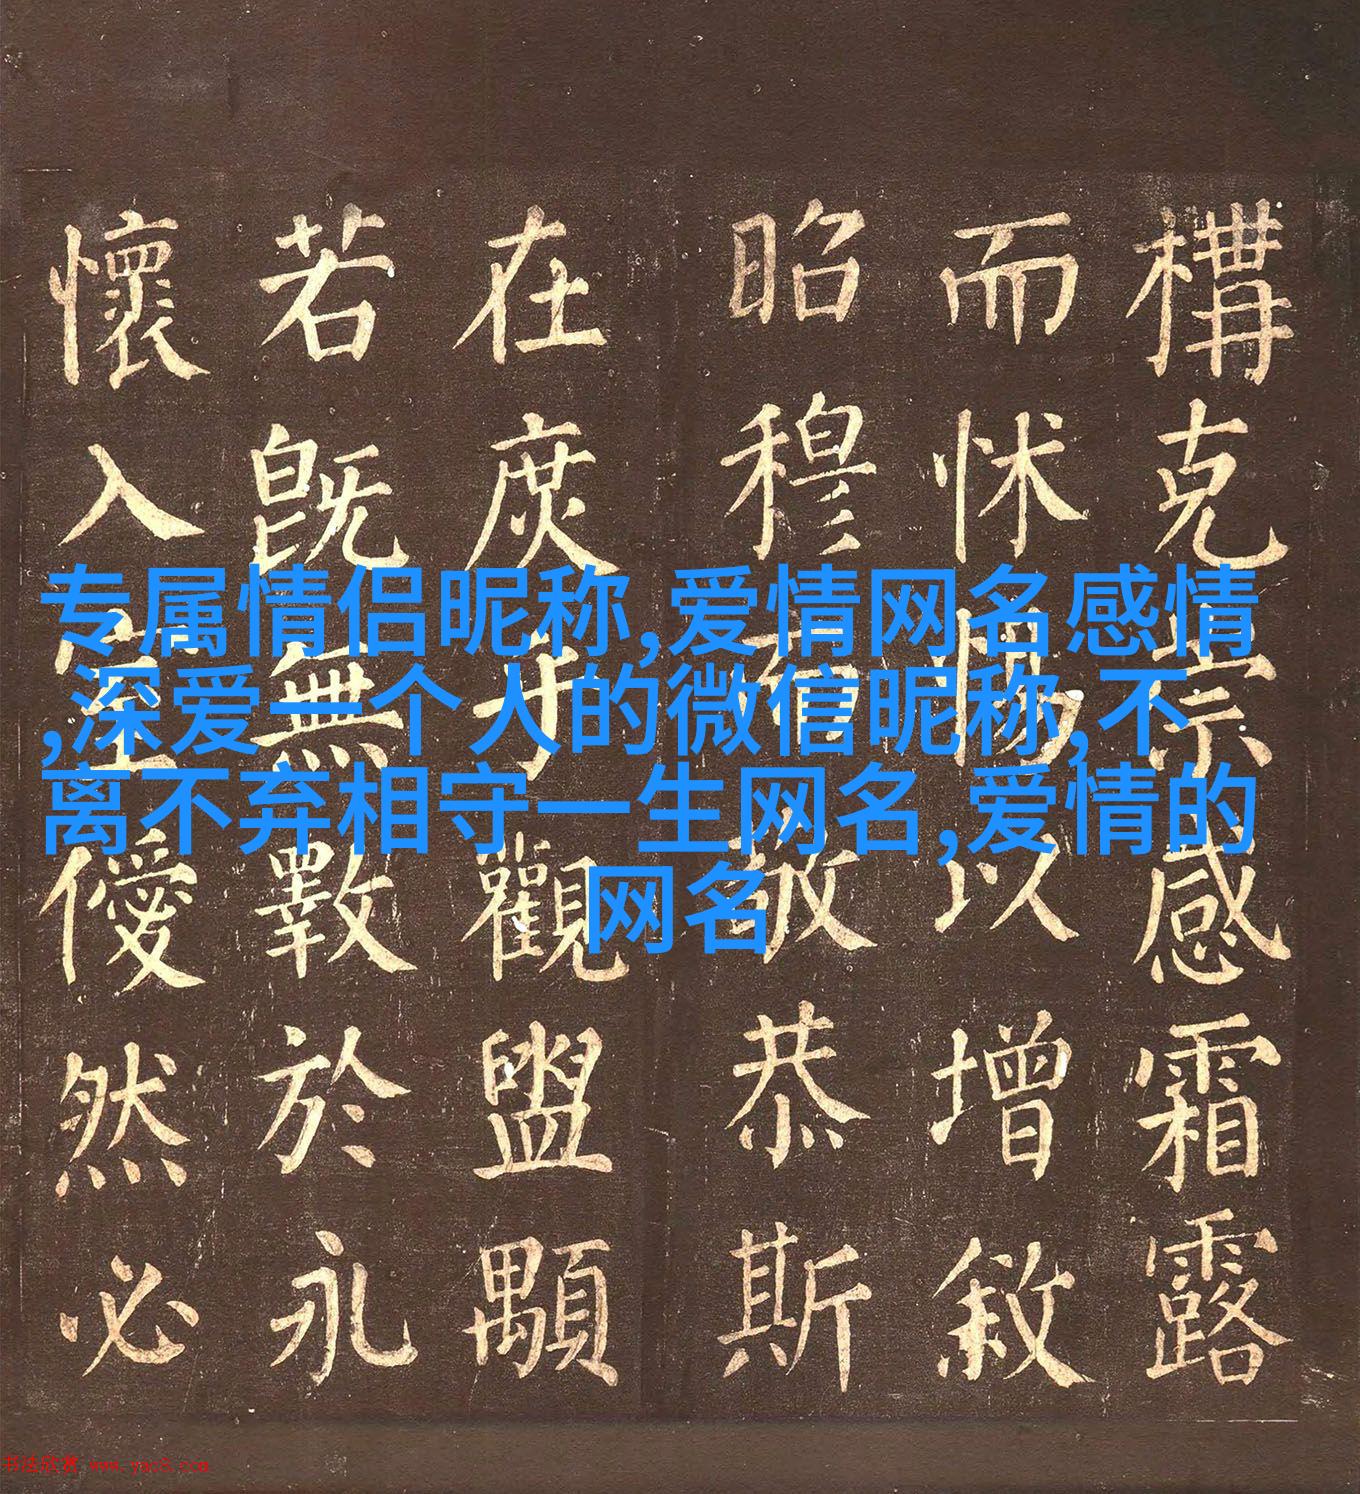 专属情侣昵称,爱情网名感情
,深爱一个人的微信昵称,不
离不弃相守一生网名,爱情的
网名
構克崇感霜露
而怵惕以增敘
昭穆敬恭斯
在庶乎觀盥顒
若既無斁於永
懷入室僾然必
书法欣赏 www.yac8.com